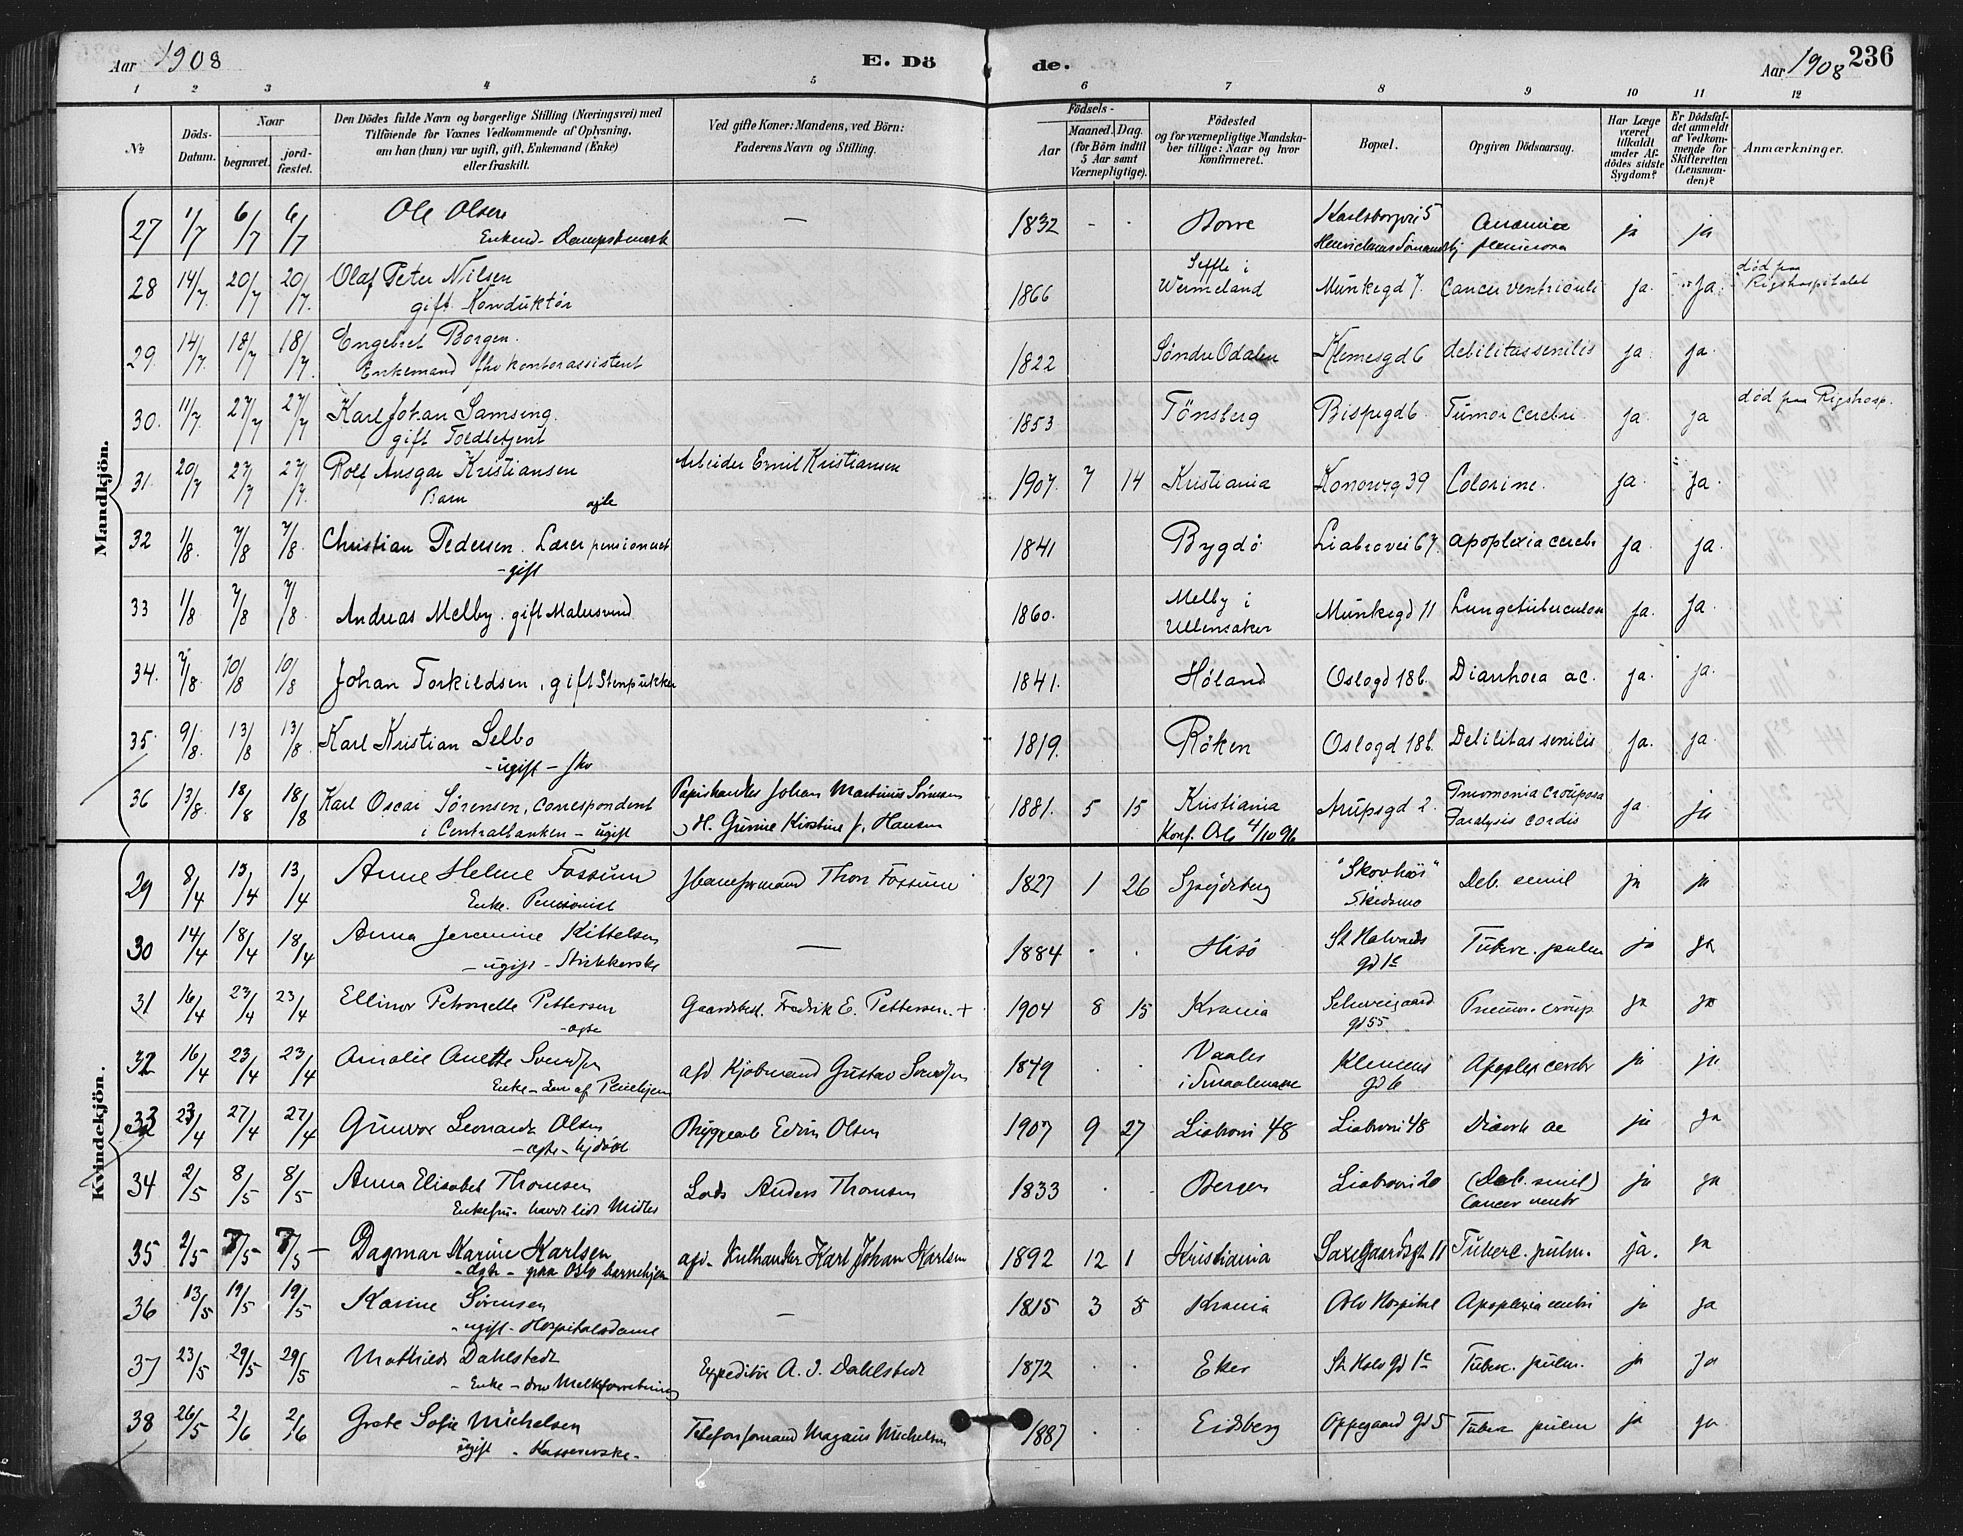 Aar 1908
E. Dö
de.
Aar 1908 236
1 2 3 4 5 6 7 8 9 10 11 12
No
Döds-Datum.
Naar
begravet. jordfæstet.
Den Dödes fulde Navn og borgerlige Stilling (Næringsvei) med
Tilföiende for Voxnes Vedkommende af Oplysning,
om han (hun) var ugift, gift, Enkemand (Enke)
eller fraskilt.
Ved gifte Koner: Mandens, ved Börn:
Faderens Navn og Stilling.
Födsels-
Aar
Maaned. Dag.
(for Börn indtil
5 Aar samt
Værnepligtige).
Födested
og for værnepligtige Mandska-
ber tillige: Naar og hvor
Konfirmeret.
Bopæl.
Opgiven Dödsaarsag.
Har Læge
været
tilkaldt
under Af-
dödes sidste
Sygdom?
Er Dödsfal-
det anmeldt
af Vedkom-
mende for
Skifteretten
(Lensman-
den)?
Anmærkninger.
Mandkjön.
27 1/7 6/7 6/7 Ole Olsen — 1832 - - Borre ja ja
28 14/7 20/7 20/7 Olaf Peter Nilsen
gift Konduktör 1866 Seffle i
Wermeland Munkegd 7. Cancer ventriculi ja. ja. död paa
Rigshospitalet
29. 14/7 18/7 18/7 Engebret Borgen.
Enkemand fhv kontorassistent 1822 Söndre Odalen Klemesgd 6 debilitas senilis ja. ja.
30. 11/7 27/7 27/7 Karl Johan Samsing.
gift Toldbetjent 1853 Tönsberg Bispegd 6. Tumor cerebri ja. ja död paa Rigshosp.
31. 20/7 27/7 27/7 Rolf Ansgar Kristiansen
Barn ægte Arbeider Emil Kristiansen 1907. 7 14 Kristiania Konowsg 39 Colorine. ja. ja.
32 1/8. 7/8 7/8. Christian Pedersen. Lærer pensioneret
- gift 1841 Bygdö Liabrovei 67. apoplexia cerebr ja. ja.
33 1/8. 7/8 7/8 Andreas Melby. gift Malersvend 1860. Melby i
Ullensaker Munkegd 11 Lungetuberculose ja. ja.
34. 7/8. 10/8 10/8 Johan Torkildsen, gift Stenpukker 1841. Höland Oslogd 18b. Diarrhoea ac. ja. ja.
35. 9/8. 13/8 13/8. Karl Kristian Selbo
- ugift - fhv 1819. Röken Oslogd 18b. Debilitas senilis ja. ja.
36 13/8. 18/8 18/8 Karl Oscar Sörensen, correspondent
i Centralbanken - ugift Johan Martinius Sörensen
Hansen 1881. 5 15 Kristiania
Konf. Oslo 4/10 96 Arupsgd 2. Pneumonia crouposa
Paralysis cordis ja. ja
Kvindekjön.
29 8/4 13/4 13/4 Anne Helene Fossum
Enke. Pensionist Thor Fossum 1827 1 26 Spydeberg "Skovhöi"
Skedsmo Deb. senil ja ja
30 14/4 18/4 18/4 Anna Jeremine Kittelsen
- ugift - Strikkerske — 1884 . . Hisö St Halvards
gd 1c Tuberc. pulm ja ja
31 16/4 23/4 23/4 Ellinor Petronelle Pettersen
- ægte Gaardsbest. Fredrik E. Pettersen. + 1904 8 15 Krania Schweigaard
gd 55 Pneum. croup ja ja
32 16/4 23/4 23/4 Amalie Anette Svendsen
Enke afd Kjöbmand Gustav Svendsen 1849 . . Vaaler
i Smaalenene Klemens
gd 6 Apoplex cerebr ja ja
33 23/4 27/4 27/4 Gunvor Leonarda Olsen
- ægte - Bryggearb Edvin Olsen 1907 9 27 Liabrovi 48 Liabrovi 48 Diarrh ac ja ja
34 2/5 8/5 8/5 Anna Elisabet Thomsen
Enkefru - havde lidt Midler Lods Anders Thomsen 1833 . . Bergen Liabrovi 20 (Deb. senil)
Cancer ja ja
35 2/5 7/5 7/5 - Dagmar Karine Karlsen
- dgtr - paa Oslo barnehjem afd. Kulhandler Karl Johan Karlsen 1892 12 1 Kristiania Saxegaardsgt 11 Tuberc. pulm. ja. ja
36 13/5 19/5 19/5 Karine Sörensen
- ugift - Hospitalsdame — 1815 3 5 Krania Oslo Hospital Apoplexia cerebri ja ja
37 23/5 29/5 29/5 Mathilde Dahlstedt
- Enke - drev Melkforretning Expeditör A. J. Dahlstedt 1872 . . Eker St Halv gd 1c Tuberc. pulm. ja ja
38 26/5 2/6 2/6 Grete Sofie Michelsen
ugift - Kassererske - Telefonformand Magnus Michelsen 1887 . . Eidsberg Oppegaard gd 5 Tuberc pulm ja ja